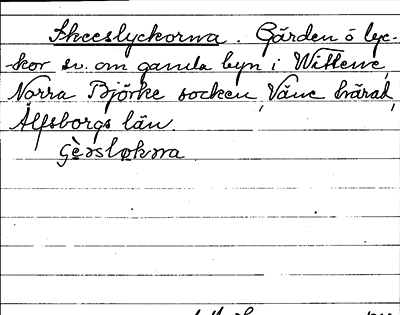 Skeeslyckorna. Gärden o lyc-
kor sv. om gamla byn i Wittene,
Norra Björke socken, Väne härad,
Älfsborgs län.